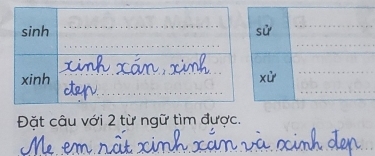 sinh
sử
xinh xinh xắn, xinh
đẹp
xử
Đặt câu với 2 từ ngữ tìm được.
Mẹ em rất xinh xắn và xinh đẹp.